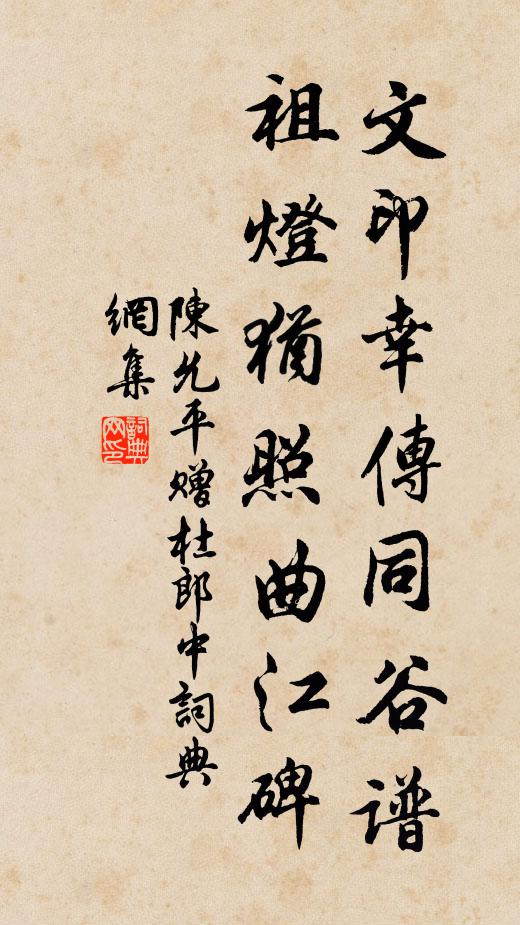 文印幸傳同谷谱
祖燈猶照曲江碑
陳允平贈杜郎中詞典
網集
詞典
网印